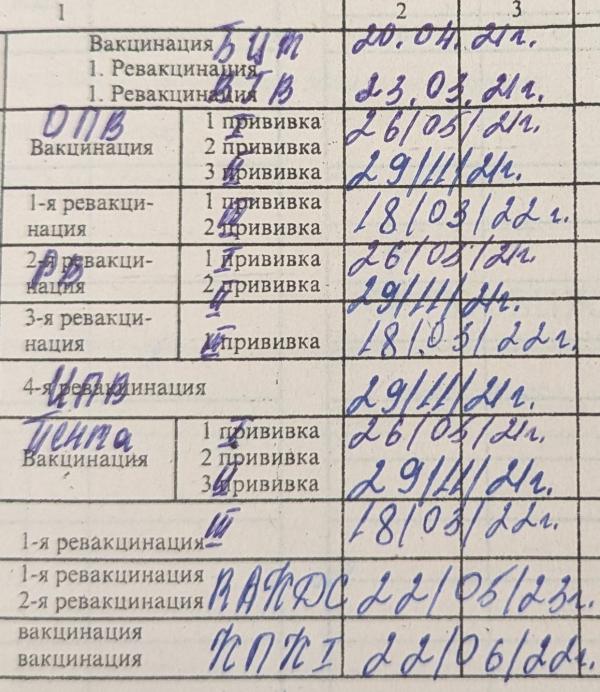 1 2 3
Вакцинация БЦЖ 20.04.21г.
1. Ревакцинация
1. Ревакцинация ВГВ 23.03.21г.
ОПВ 1 прививка I 26/05/21г.
Вакцинация 2 прививка
3 прививка II 29/11/21г.
1-я ревакци- 1 прививка
нация 2 прививка III 18/03/22г.
2-я ревакци- РВ 1 прививка I 26/05/21г.
нация 2 прививка II 29/11/21г.
3-я ревакци-
нация 1 прививка III 18/03/22г.
4-я ревакцинация ИПВ 29/11/21г.
Пента 1 прививка I 26/05/21г.
Вакцинация 2 прививка
3 прививка II 29/11/21г.
1-я ревакцинация III 18/03/22г.
1-я ревакцинация
2-я ревакцинация КАКДС 22/05/23г.
вакцинация
вакцинация КПК I 22/06/22г.